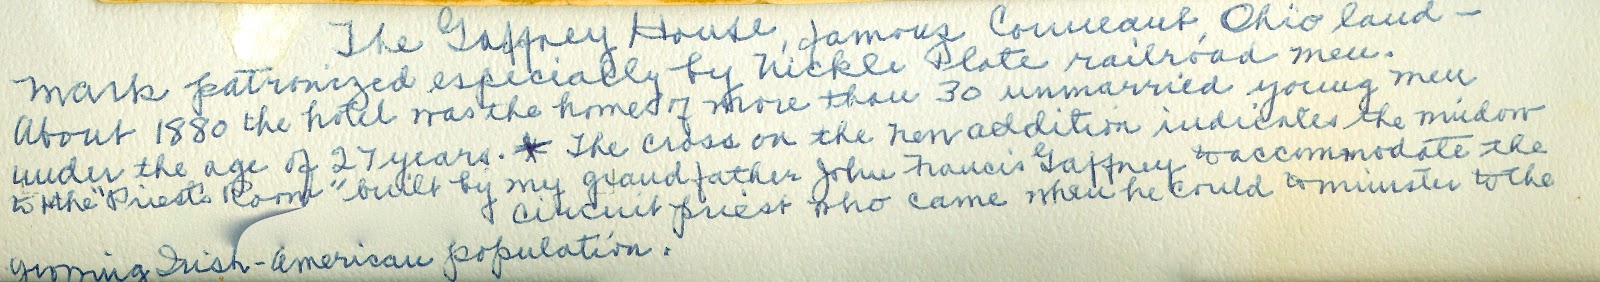 The Gaffney House, famous Conneaut, Ohio land-
mark patronized especially by Nickle Plate railroad men.
About 1880 the hotel was the home of more than 30 unmarried young men
under the age of 27 years. * The cross on the new addition indicates the window
to the "Priest's Room" built by my grandfather John Francis Gaffney to accommodate the
circuit priest who came when he could to minister to the
growing Irish-American population.